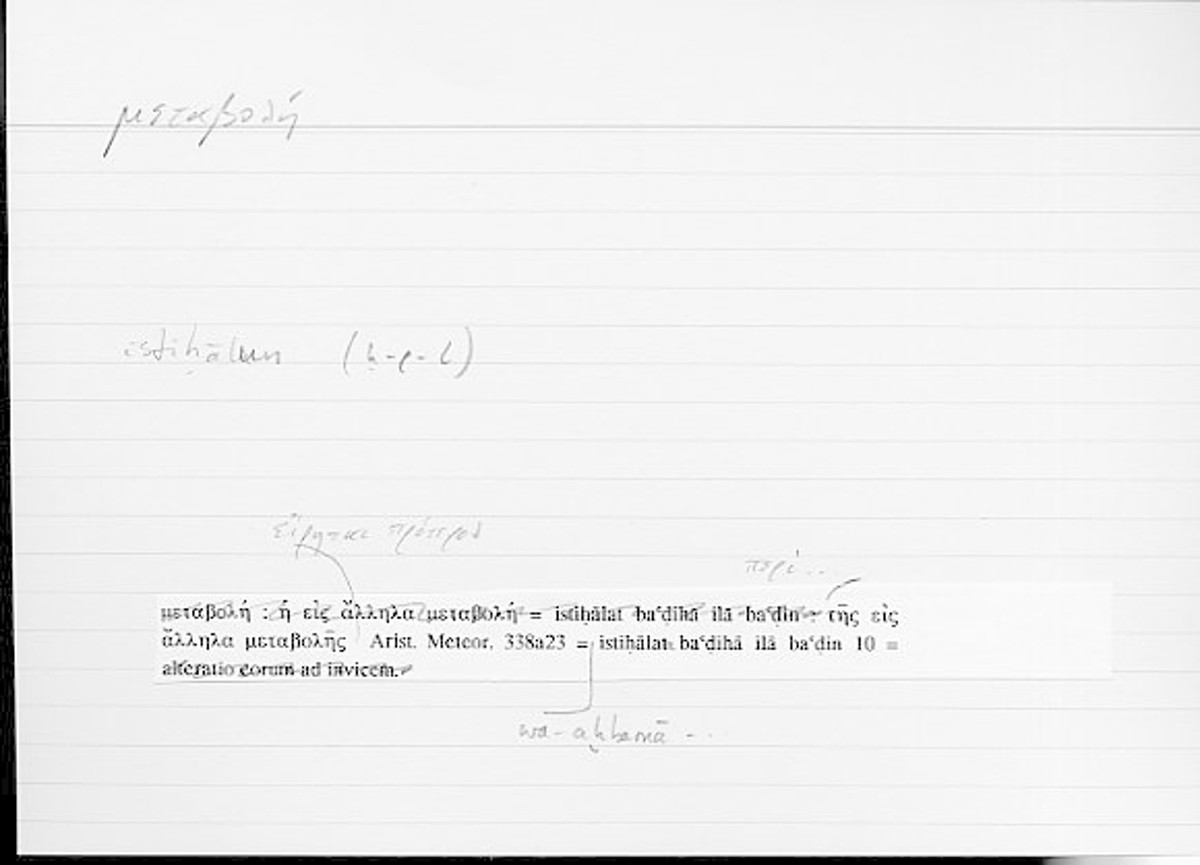 μεταβολή
istiḥālun (ḥ-w-l)
εἴρηται πρότερον
περὶ ..
μεταβολή : ἡ εἰς ἄλληλα μεταβολή = istiḥālat baʿḍihā ilā baʿḍin : τῆς εἰς
ἄλληλα μεταβολῆς Arist. Meteor. 338a23 = istiḥālat baʿḍihā ilā baʿḍin 10 =
alteratio eorum ad invicem.
wa-aḫbarnā - ..